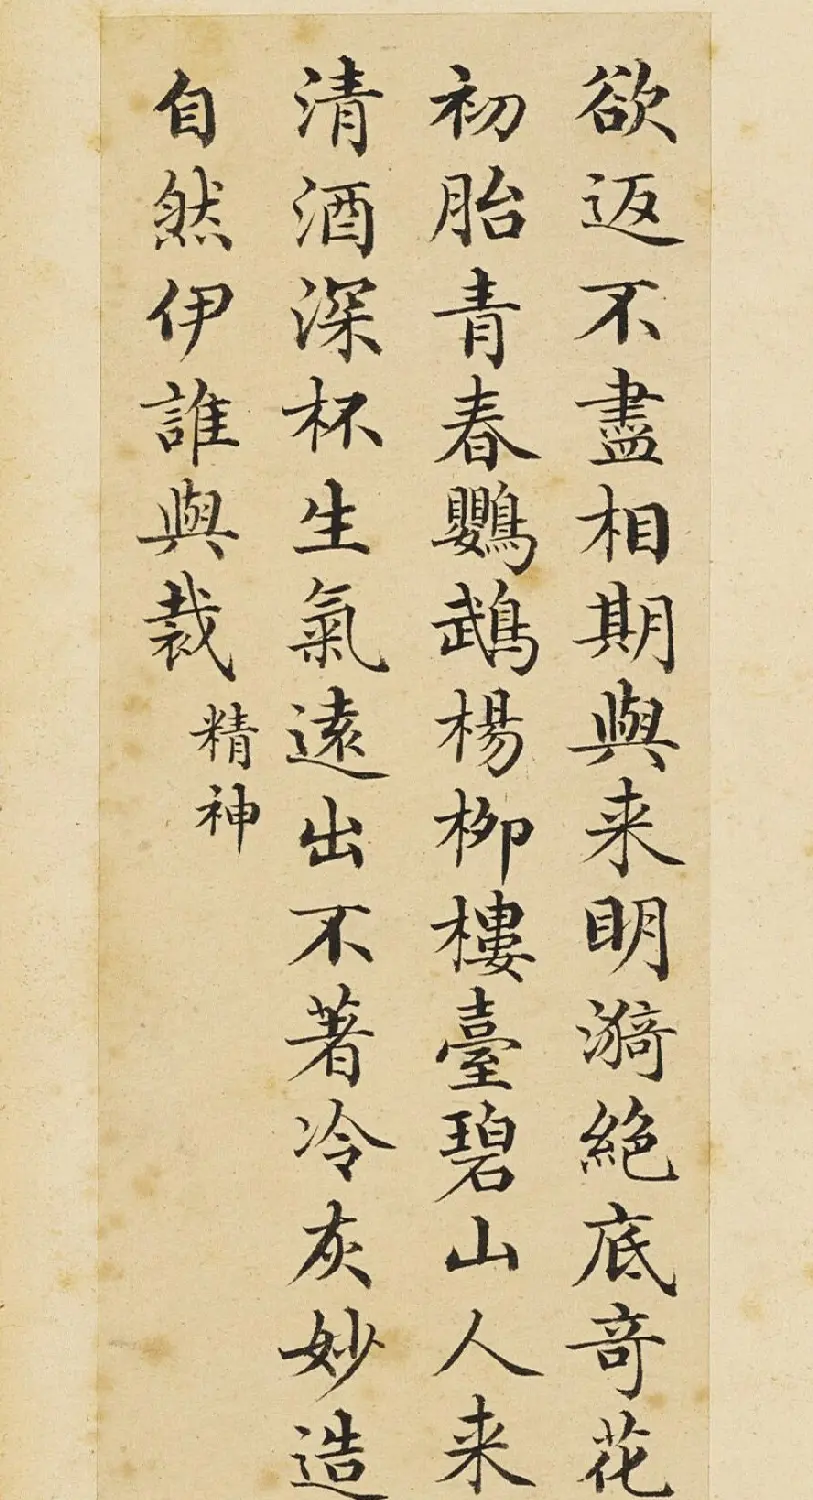 欲返不盡相期與来明漪絶底奇花
初胎青春鸚鵡楊柳樓臺碧山人来
清酒深杯生氣遠出不著冷灰妙造
自然伊誰與裁
精神